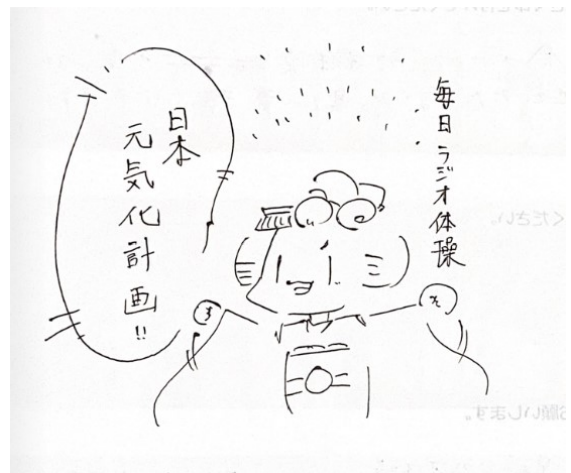 毎日ラジオ体操
日本
元気化計画!!